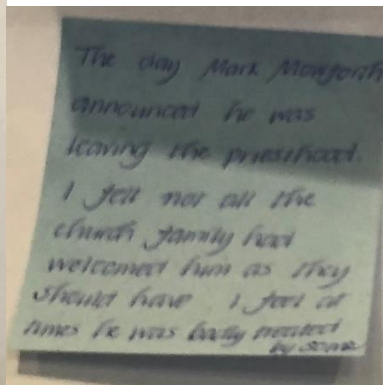 The day Mark Mowforth
announced he was
leaving the priesthood.
I felt not all the
church family had
welcomed him as they
should have I feel at
times he was badly treated
by some